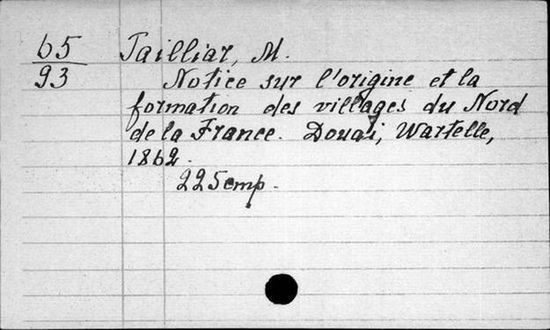 65 Tailliar, M.
93 Notice sur l'origine et la
formation des villages du Nord
de la France. Douai, Wartelle,
1862.
225 cmp.